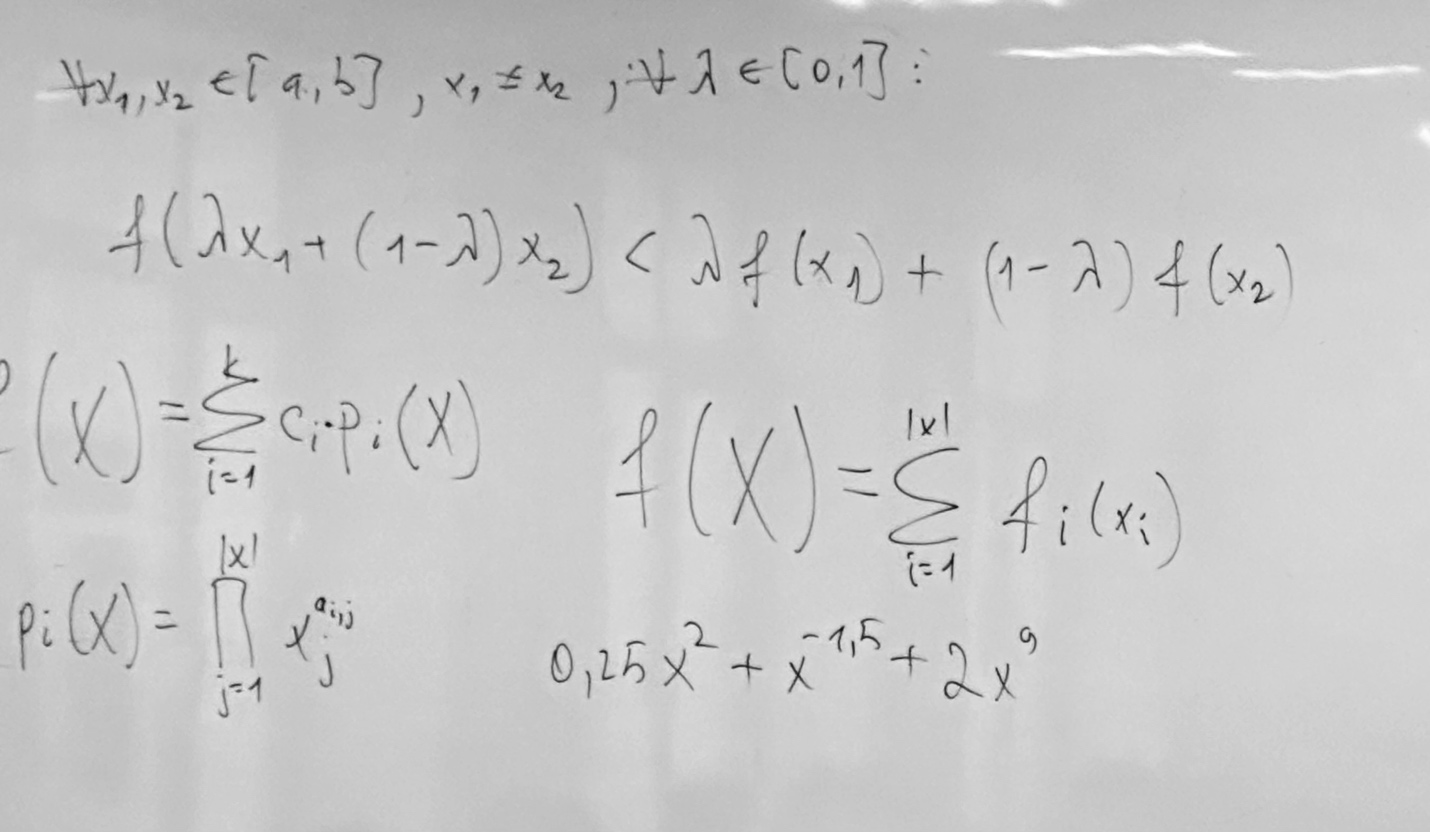 ∀x₁, x₂ ∈ [a, b], x₁ ≠ x₂, ∀ λ ∈ [0,1] :
f(λx₁ + (1-λ)x₂) < λ f(x₁) + (1-λ) f(x₂)
(X) = ∑_{i=1}^{k} c_i · p_i(X)
f(X) = ∑_{i=1}^{|x|} f_i(x_i)
p_i(X) = ∏_{j=1}^{|x|} x_j^{a_{i,j}}
0,25x² + x^{-1,5} + 2x⁹